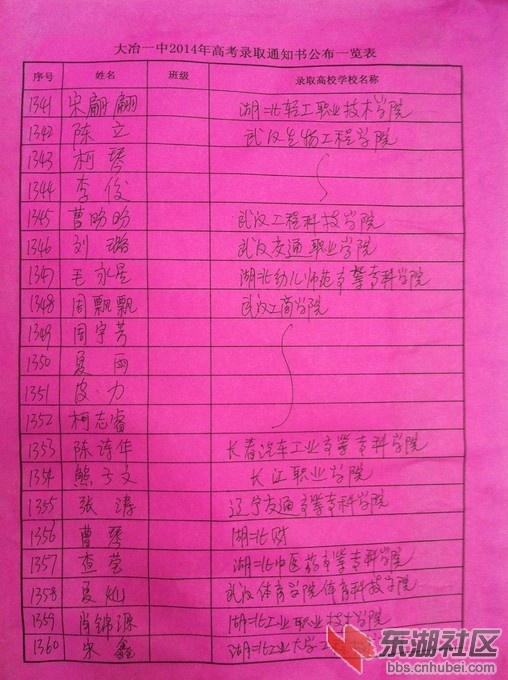 大冶一中2014年高考录取通知书公布一览表
序号 姓名 班级 录取高校学校名称
1341 宋翩翩 湖北轻工职业技术学院
1342 陈立 武汉生物工程学院
1343 柯琴
1344 李俊
1345 曹盼盼 武汉工程科技学院
1346 刘璐 武汉交通职业学院
1347 毛永星 湖北幼儿师范高等专科学院
1348 周飘飘 武汉工商学院
1349 周宇芳
1350 夏雨
1351 皮力
1352 柯志睿
1353 陈诗华 长春汽车工业高等专科学院
1354 熊子文 长江职业学院
1355 张涛 辽宁交通高等专科学院
1356 曹琴 湖北财
1357 查莹 湖北中医药高等专科学院
1358 夏灿 武汉体育学院体育科技学院
1359 肖锦源 湖北工业职业技术学院
1360 宋鑫 湖北工业大学工
东湖社区
bbs.cnhubei.com